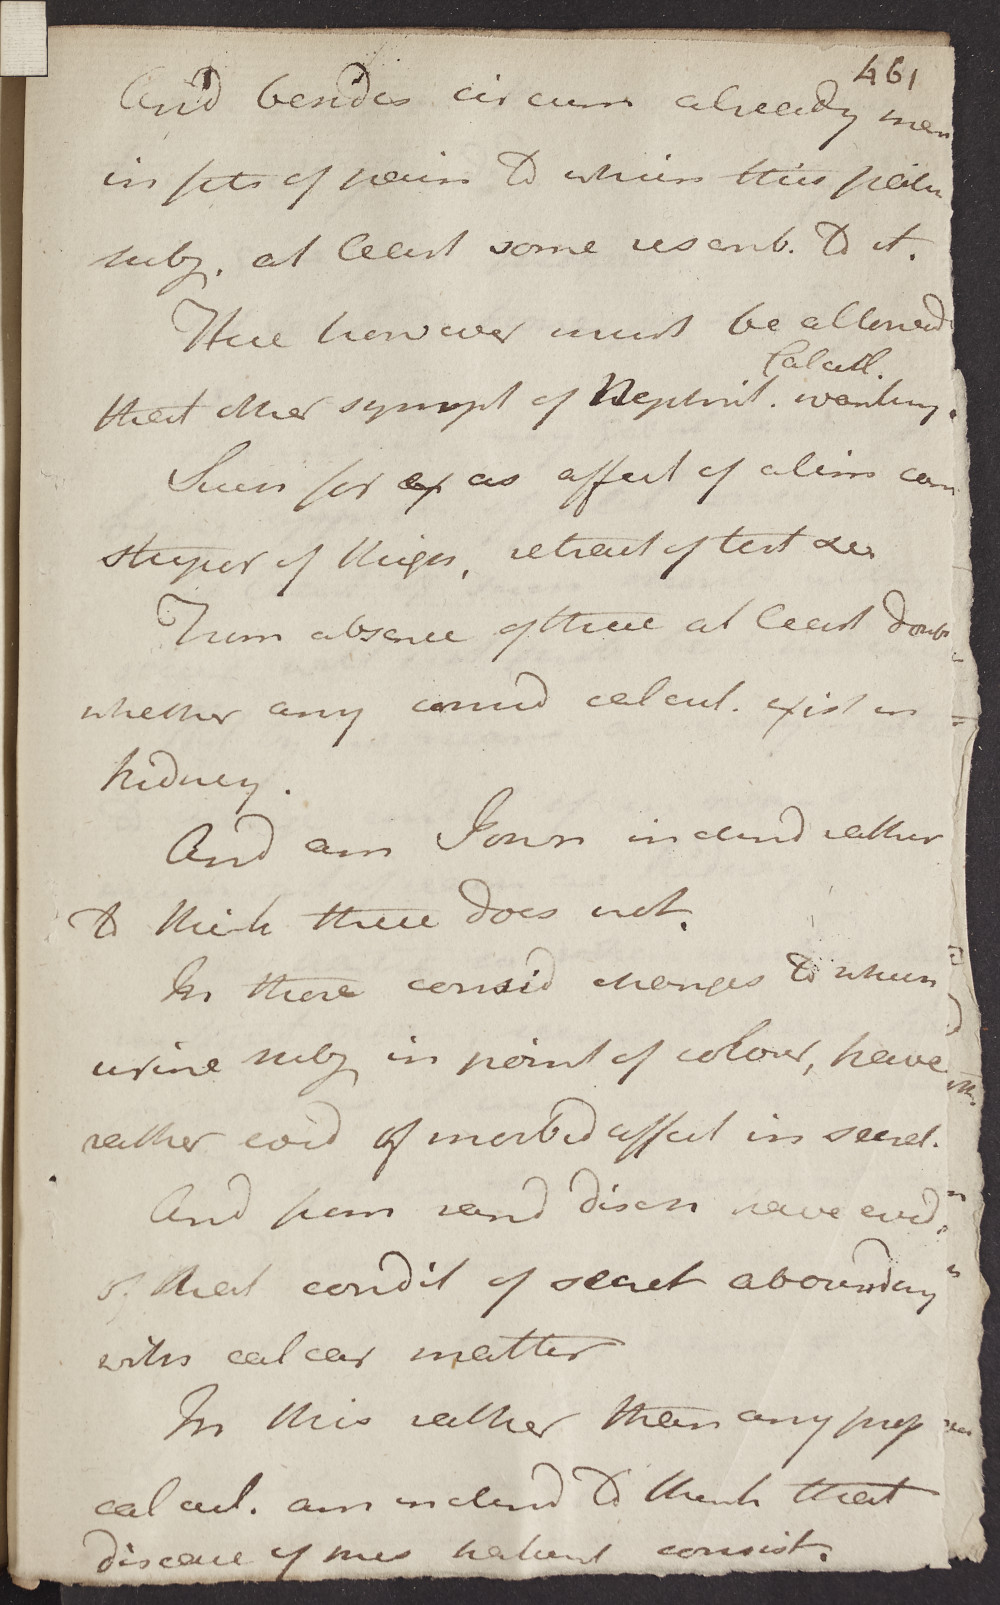 461
And besides circum already men
in fits of pain to which this patien
subj. at least some resemb. to it.
Here however must be allowed
Calcul.
that other sympt of Nephrit. wanting.
Such for ex as affect of alim can
stupor of thigh, retract of test &c
From absence of these at least doubt
whether any consid calcul. exist in
kidney.
And am I own inclind rather
to think there does not.
In those consid changes to which
urine subj in point of colour, have
rather evid of morbid affect in secret.
And from sand disch have evid
of that condit of secret abounding
with calcar matter
In this rather than any prop
calcul. am inclind to think that
disease of this patient consist.